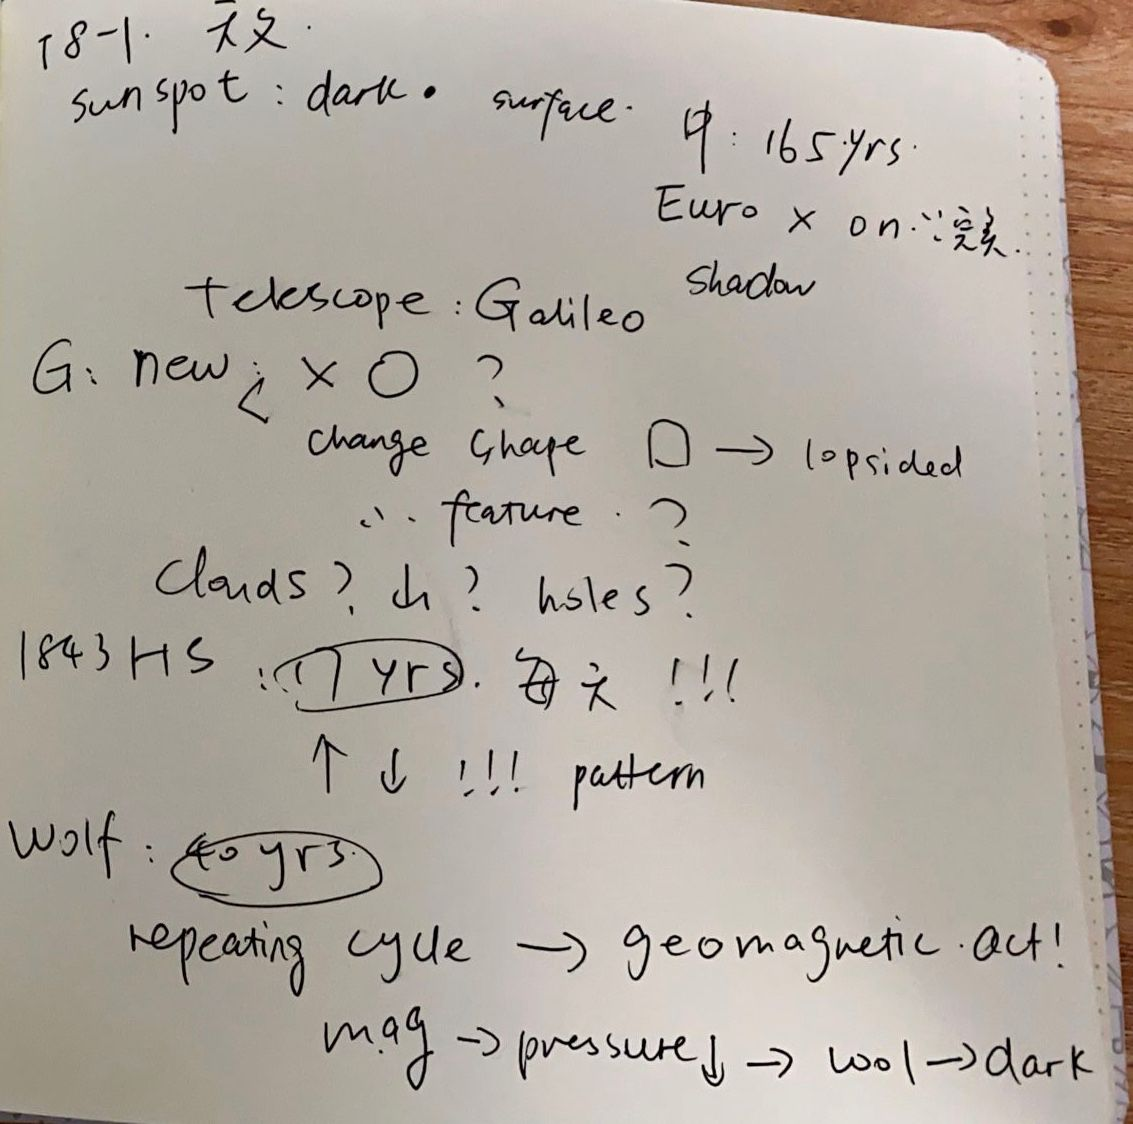 T8-1. 天文.
sunspot : dark. surface.
中: 165 yrs.
Euro × on ∵ 完美.
shadow
telescope : Galileo
G: new ; × ○ ?
change shape → lopsided
∴ feature. ?
clouds? 山? holes?
1843 HS : 17 yrs. 每天 !!!
↑ ↓ !!! pattern
Wolf : 40 yrs.
repeating cycle → geomagnetic. act!
mag → pressure↓ → cool → dark